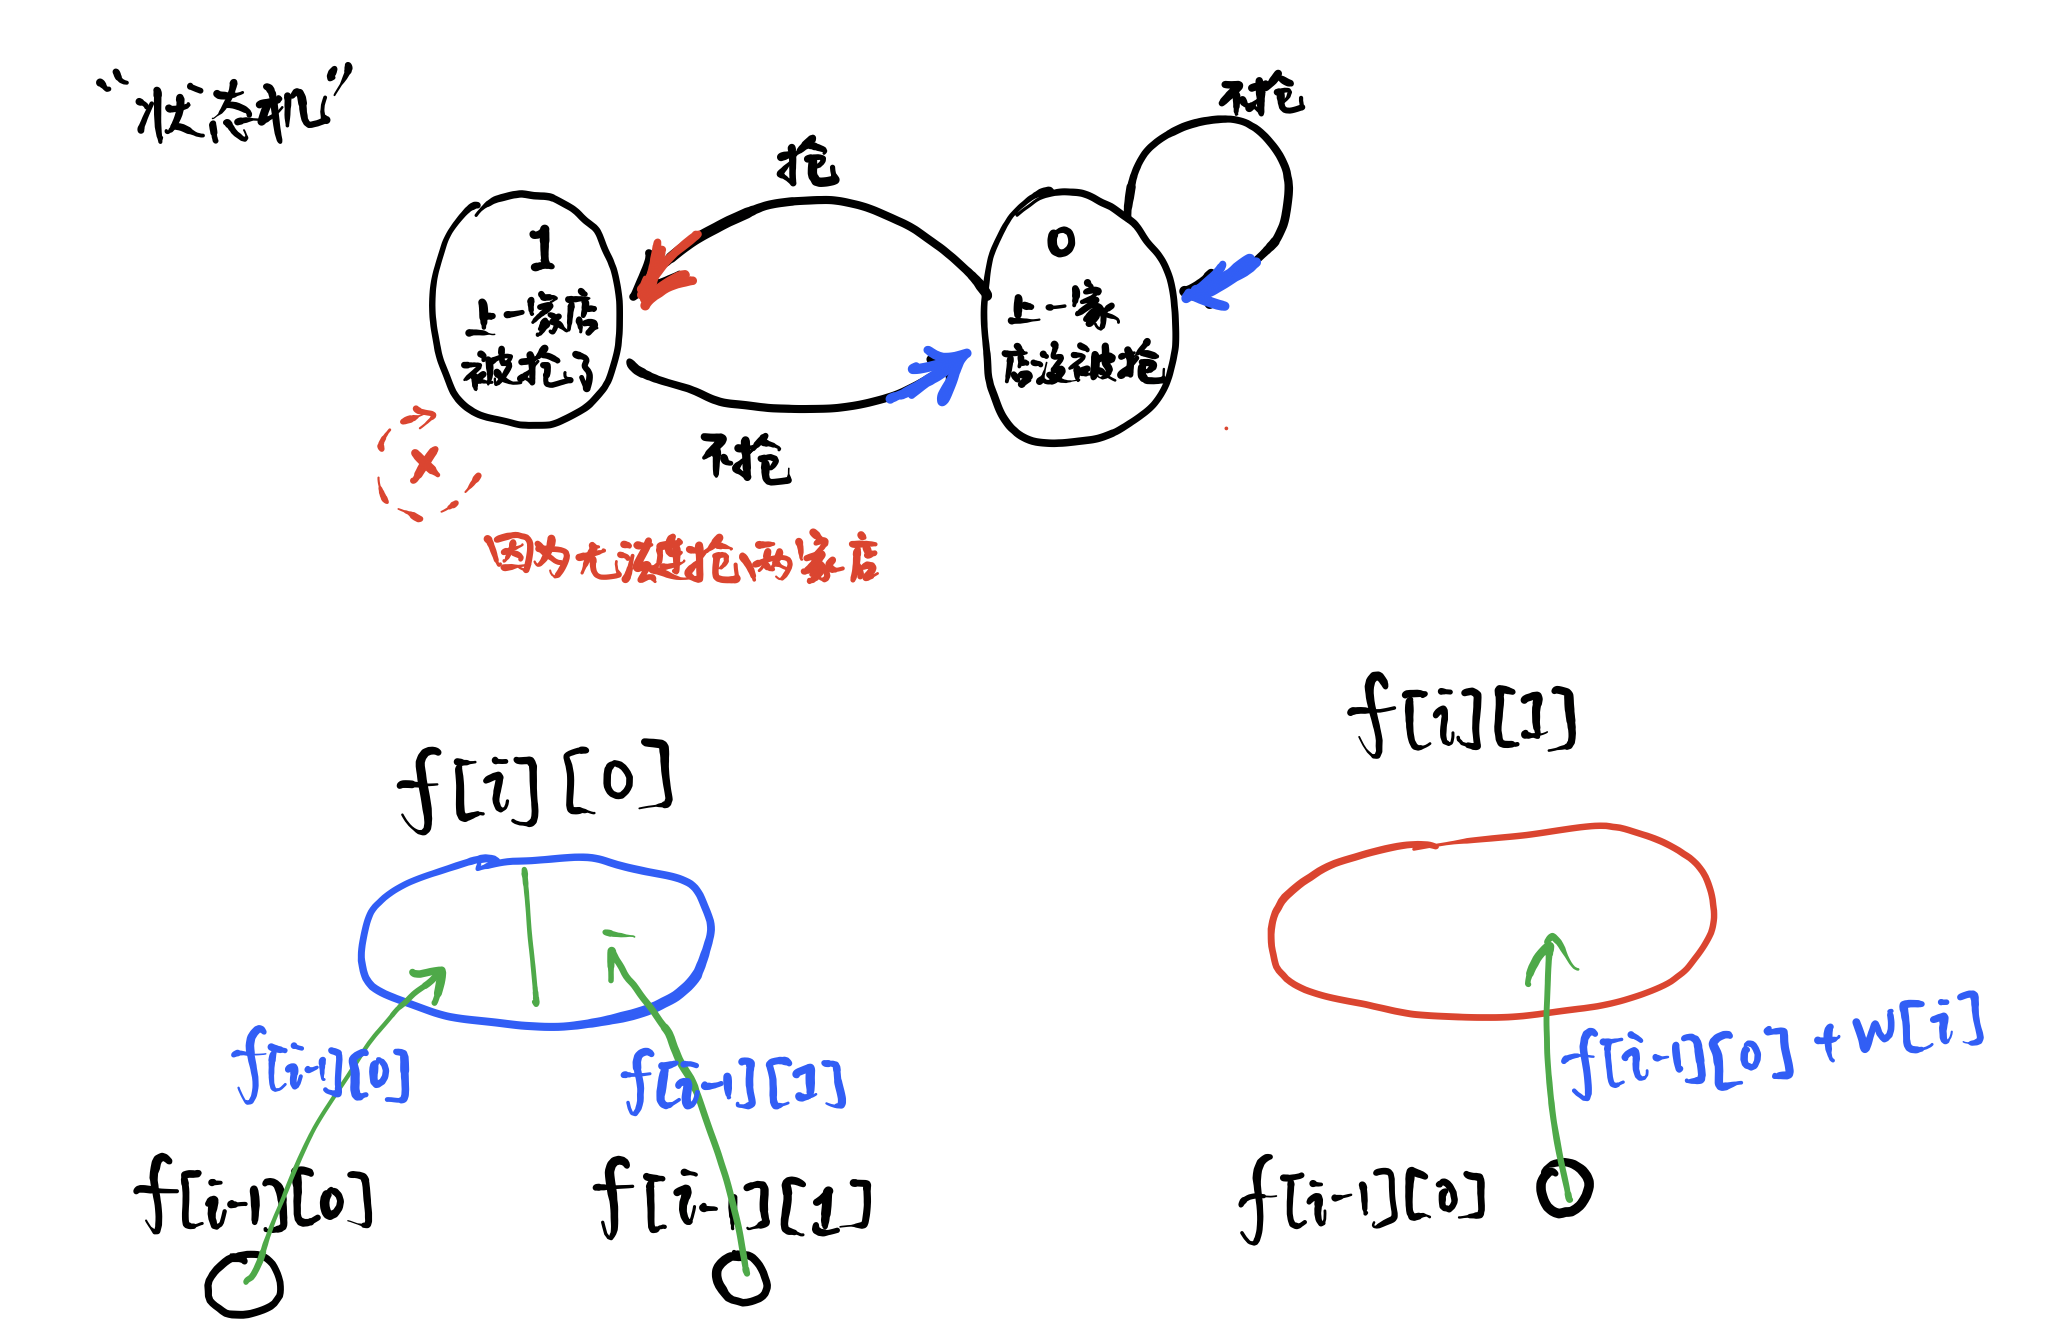 “状态机”
不抢
抢
1
上一家店
被抢了
0
上一家
店没被抢
不抢
因为无法连抢两家店
f[i][1]
f[i][0]
f[i-1][0]
f[i-1][1]
f[i-1][0]+w[i]
f[i-1][0]
f[i-1][1]
f[i-1][0]